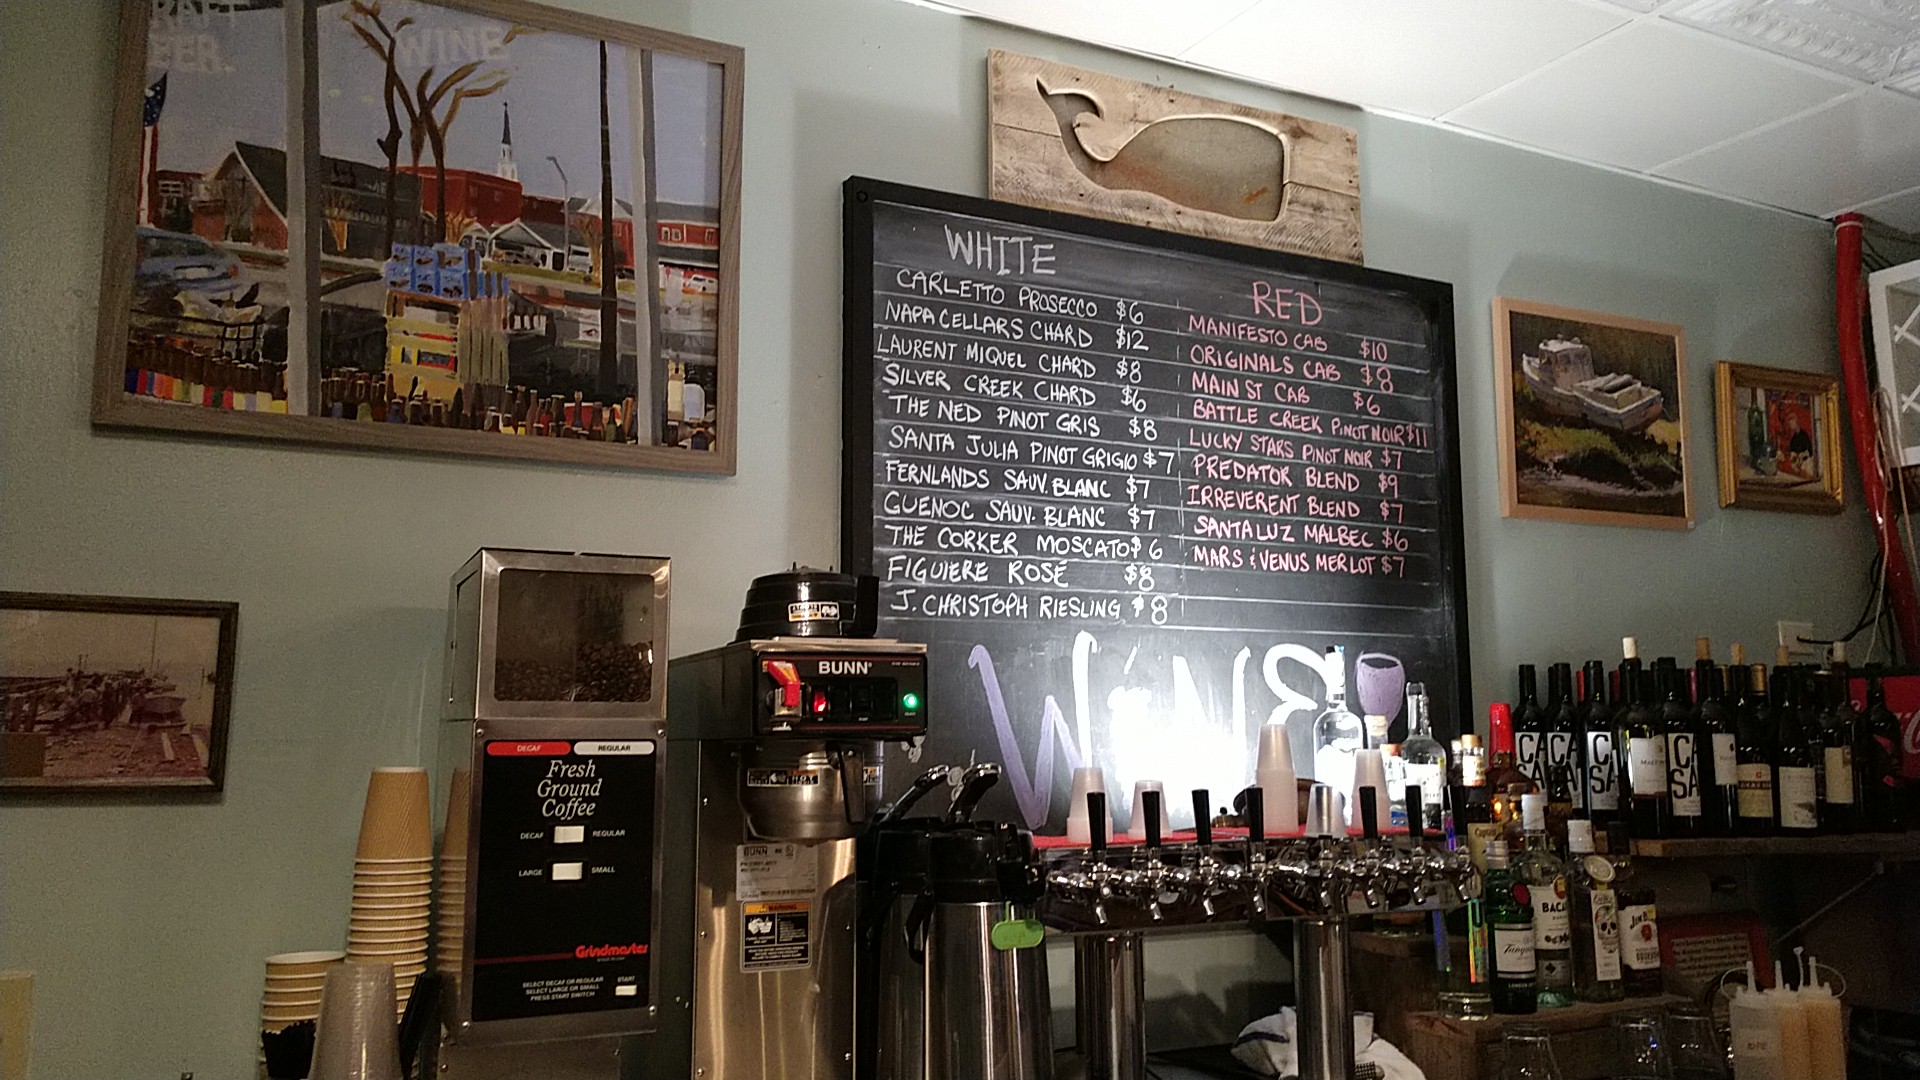 WINE
WHITE
CARLETTO PROSECCO $6
NAPA CELLARS CHARD $12
LAURENT MIQUEL CHARD $8
SILVER CREEK CHARD $6
THE NED PINOT GRIS $8
SANTA JULIA PINOT GRIGIO $7
FERNLANDS SAUV. BLANC $7
GUENOC SAUV. BLANC $7
THE CORKER MOSCATO $6
FIGUIERE ROSÉ $8
J. CHRISTOPH RIESLING $8
RED
MANIFESTO CAB $10
ORIGINALS CAB $8
MAIN ST CAB $6
BATTLE CREEK PINOT NOIR $11
LUCKY STARS PINOT NOIR $7
PREDATOR BLEND $9
IRREVERENT BLEND $7
SANTA LUZ MALBEC $6
MARS & VENUS MERLOT $7
WiNE
BUNN
DECAF REGULAR
Fresh
Ground
Coffee
DECAF REGULAR
LARGE SMALL
Grindmaster
SELECT DECAF OR REGULAR
SELECT LARGE OR SMALL
PRESS START SWITCH
START
BUNN
WARNING
CA
SA
Tanqueray
BACA
JIM B